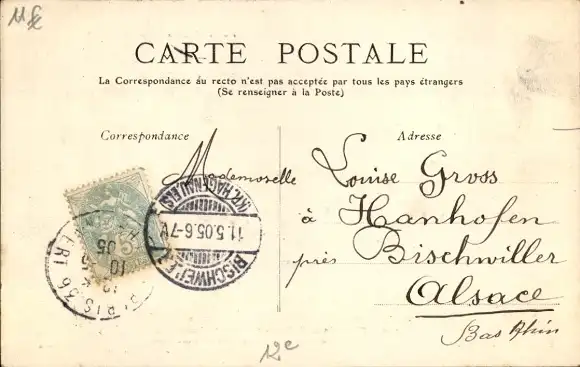 CARTE POSTALE
La Correspondance au recto n'est pas acceptée par tous les pays étrangers
(Se renseigner à la Poste)
Correspondance
Adresse
Mademoiselle Louise Gross
à Hanhofen
près Bischwiller
Alsace
Bas Rhin
BISCHWEILER
(KR. HAGENAU, ELS)
11.5.05.6-7V.
PARIS 36
10
05
5
12e